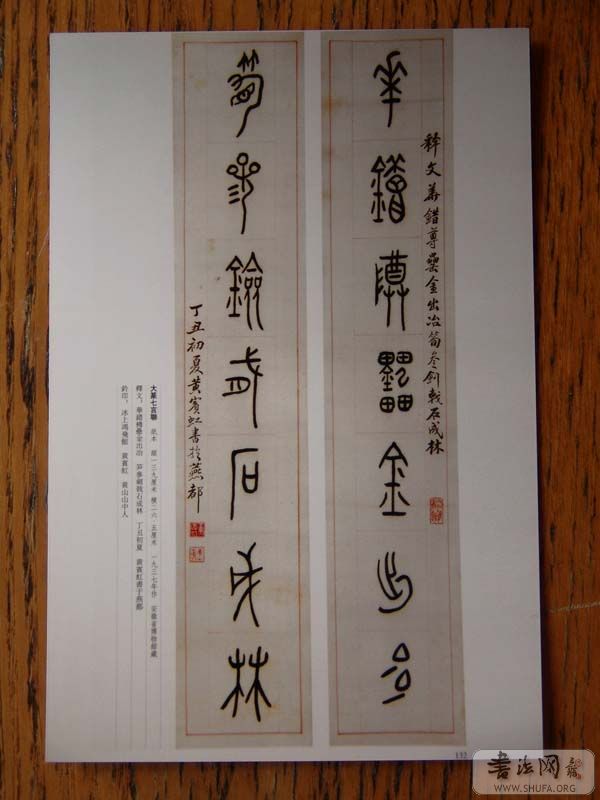 華錯尊罍金出冶
釋文華錯尊罍金出冶筍參劍戟石成林
筍參劍戟石成林
丁丑初夏黃賓虹書於燕都
大篆七言聯 紙本 縱一三九厘米 橫二六·五厘米 一九三七年作 安徽省博物館藏
釋文：華錯樽罍金出冶 筍參劍戟石成林 丁丑初夏 黃賓虹書于燕都
鈐印：冰上鴻飛館 黃賓虹 黃山山中人
132
書法网
WWW.SHUFA.ORG